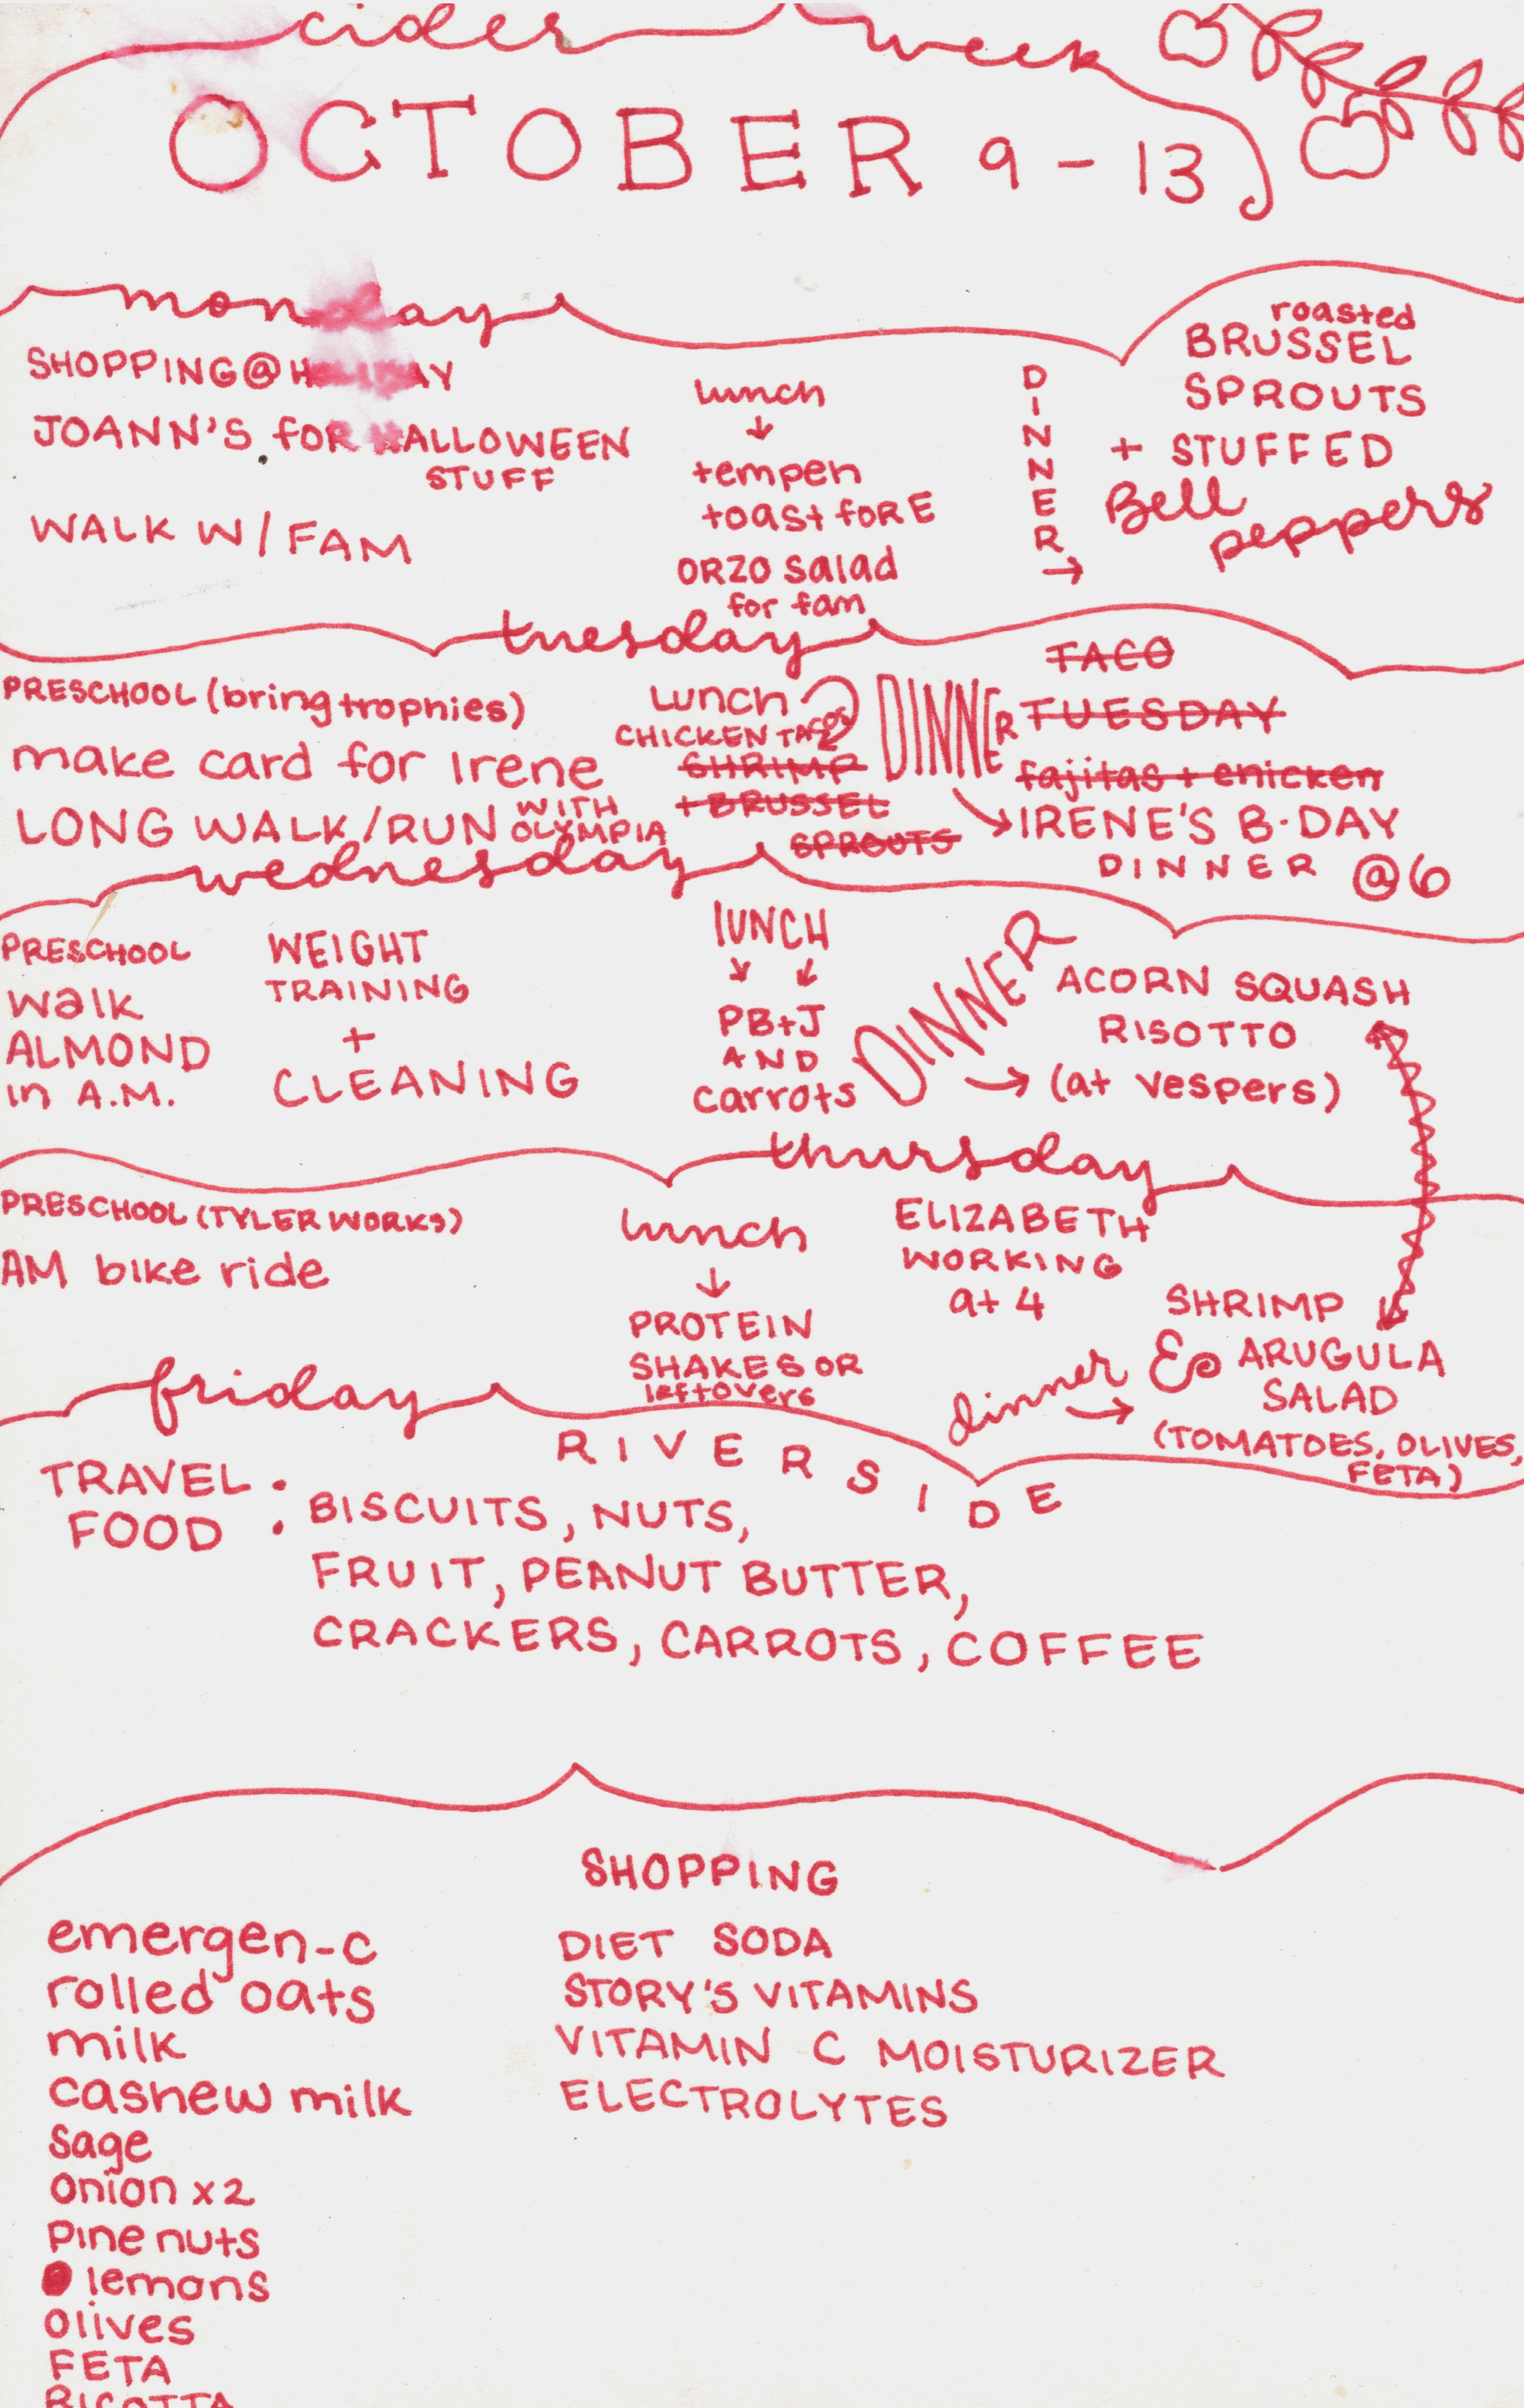 cider week
OCTOBER 9-13
monday
SHOPPING@
JOANN'S FOR HALLOWEEN
STUFF
WALK W/FAM
lunch
↓
tempeh
toast for E
ORZO salad
for fam
DINNER
→
roasted
BRUSSEL
SPROUTS
+ STUFFED
Bell
peppers
tuesday
PRESCHOOL (bring trophies)
make card for Irene
LONG WALK/RUN WITH
OLYMPIA
Lunch
CHICKEN TACOS
SHRIMP
+ BRUSSEL
SPROUTS
DINNER
TACO
TUESDAY
fajitas + chicken
IRENE'S B-DAY
DINNER @6
wednesday
PRESCHOOL
walk
ALMOND
in A.M.
WEIGHT
TRAINING
+
CLEANING
LUNCH
PB+J
AND
carrots
DINNER
→
ACORN SQUASH
RISOTTO
(at vespers)
thursday
PRESCHOOL (TYLER WORKS)
AM bike ride
lunch
↓
PROTEIN
SHAKES OR
leftovers
ELIZABETH
WORKING
at 4
dinner
→
SHRIMP
& ARUGULA
SALAD
(TOMATOES, OLIVES,
FETA)
friday
RIVERSIDE
TRAVEL
FOOD :
BISCUITS, NUTS,
FRUIT, PEANUT BUTTER,
CRACKERS, CARROTS, COFFEE
SHOPPING
emergen-c
rolled oats
milk
cashew milk
sage
onion x2
pine nuts
lemons
olives
FETA
RICOTTA
DIET SODA
STORY'S VITAMINS
VITAMIN C MOISTURIZER
ELECTROLYTES